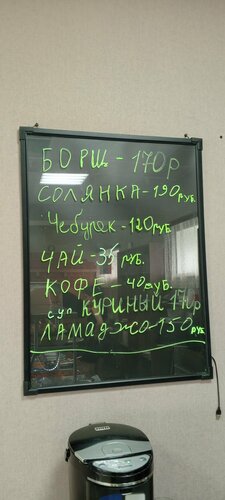 БОРЩ - 170 р
СОЛЯНКА - 190 РУБ.
Чебурек - 120 РУБ.
ЧАЙ - 35 РУБ.
КОФЕ - 40 РУБ.
суп КУРИНЫЙ 170 р
ЛАМАДЖО - 150 РУБ